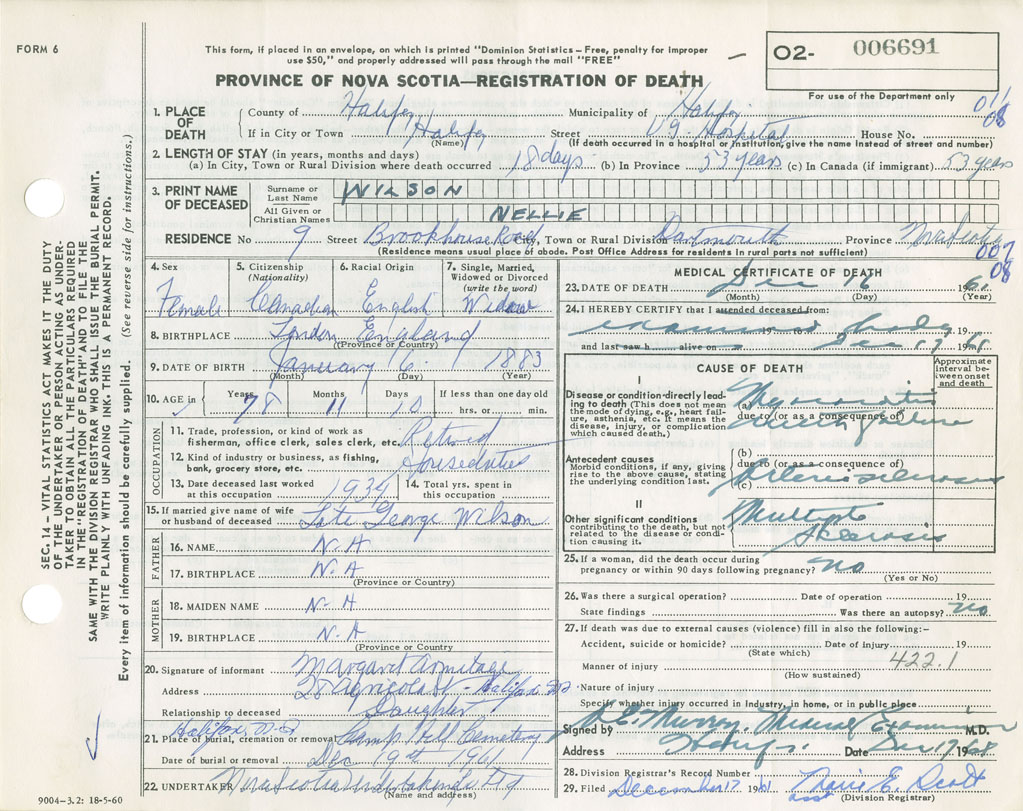 FORM 6
This form, if placed in an envelope, on which is printed "Dominion Statistics – Free, penalty for improper
use $50," and properly addressed will pass through the mail "FREE"
O2- 006691
For use of the Department only
PROVINCE OF NOVA SCOTIA—REGISTRATION OF DEATH
011
08
1. PLACE OF DEATH County of Halifax Municipality of Halifax
If in City or Town Halifax Street V.G. Hospital House No.
(Name) (If death occurred in a hospital or institution, give the name instead of street and number)
2. LENGTH OF STAY (in years, months and days)
(a) In City, Town or Rural Division where death occurred 18 days (b) In Province 53 years (c) In Canada (if immigrant) 53 years
3. PRINT NAME OF DECEASED Surname or Last Name WILSON
All Given or Christian Names NELLIE
RESIDENCE No 9 Street Brookhouse Road City, Town or Rural Division Dartmouth Province Nova Scotia
(Residence means usual place of abode. Post Office Address for residents in rural parts not sufficient)
007
08
4. Sex 5. Citizenship (Nationality) 6. Racial Origin 7. Single, Married, Widowed or Divorced (write the word)
Female Canadian English Widow
8. BIRTHPLACE London England
(Province or Country)
9. DATE OF BIRTH January 6 1883
(Month) (Day) (Year)
10. AGE in Years 78 Months 11 Days 10 If less than one day old
hrs. or min.
OCCUPATION
11. Trade, profession, or kind of work as
fisherman, office clerk, sales clerk, etc. Retired
12. Kind of industry or business, as fishing,
bank, grocery store, etc. Houseduties
13. Date deceased last worked
at this occupation 1934
14. Total yrs. spent in
this occupation
15. If married give name of wife
or husband of deceased Late George Wilson
FATHER
16. NAME N.A
17. BIRTHPLACE N.A
(Province or Country)
MOTHER
18. MAIDEN NAME N-A
19. BIRTHPLACE N.A
(Province or Country)
20. Signature of informant Margaret Armitage
Address 28 Agricola St - Halifax NS
Relationship to deceased Daughter
Halifax, N.S
21. Place of burial, cremation or removal Camp Hill Cemetery
Date of burial or removal Dec 19th 1961
22. UNDERTAKER Nova Scotia Undertaking Co
(Name and address)
MEDICAL CERTIFICATE OF DEATH
23. DATE OF DEATH Dec 16 1961
(Month) (Day) (Year)
24. I HEREBY CERTIFY that I attended deceased from:
examined body 19
and last saw h alive on Dec 17 1961
CAUSE OF DEATH
Approximate interval between onset and death
I
Disease or condition directly leading to death (This does not mean
the mode of dying, e.g., heart failure, asthenia, etc. It means the
disease, injury, or complication
which caused death.)
(a) Myocarditis
due to (or as a consequence of)
Heart failure
Antecedent causes
Morbid conditions, if any, giving
rise to the above cause, stating
the underlying condition last.
(b)
due to (or as a consequence of)
(c) Arteriosclerosis
II
Other significant conditions
contributing to the death, but not
related to the disease or condition causing it.
Multiple
Sclerosis
25. If a woman, did the death occur during
pregnancy or within 90 days following pregnancy? no
(Yes or No)
26. Was there a surgical operation? Date of operation 19
State findings Was there an autopsy? no
27. If death was due to external causes (violence) fill in also the following:–
Accident, suicide or homicide? Date of injury 19
(State which)
Manner of injury 422.1
(How sustained)
Nature of injury
Specify whether injury occurred in Industry, in home, or in public place
Signed by Murray, Medical Examiner M.D.
Address Halifax Date Dec 17 19
28. Division Registrar's Record Number
29. Filed December 17 1961 Marie E. Scott
(Division Registrar)
SEC. 14 – VITAL STATISTICS ACT MAKES IT THE DUTY
OF THE UNDERTAKER OR PERSON ACTING AS UNDERTAKER TO OBTAIN ALL THE PARTICULARS REQUIRED
IN THE "REGISTRATION OF DEATH" AND TO FILE THE
SAME WITH THE DIVISION REGISTRAR WHO SHALL ISSUE THE BURIAL PERMIT.
WRITE PLAINLY WITH UNFADING INK. THIS IS A PERMANENT RECORD.
Every item of information should be carefully supplied. (See reverse side for instructions.)
9004–3.2: 18-5-60